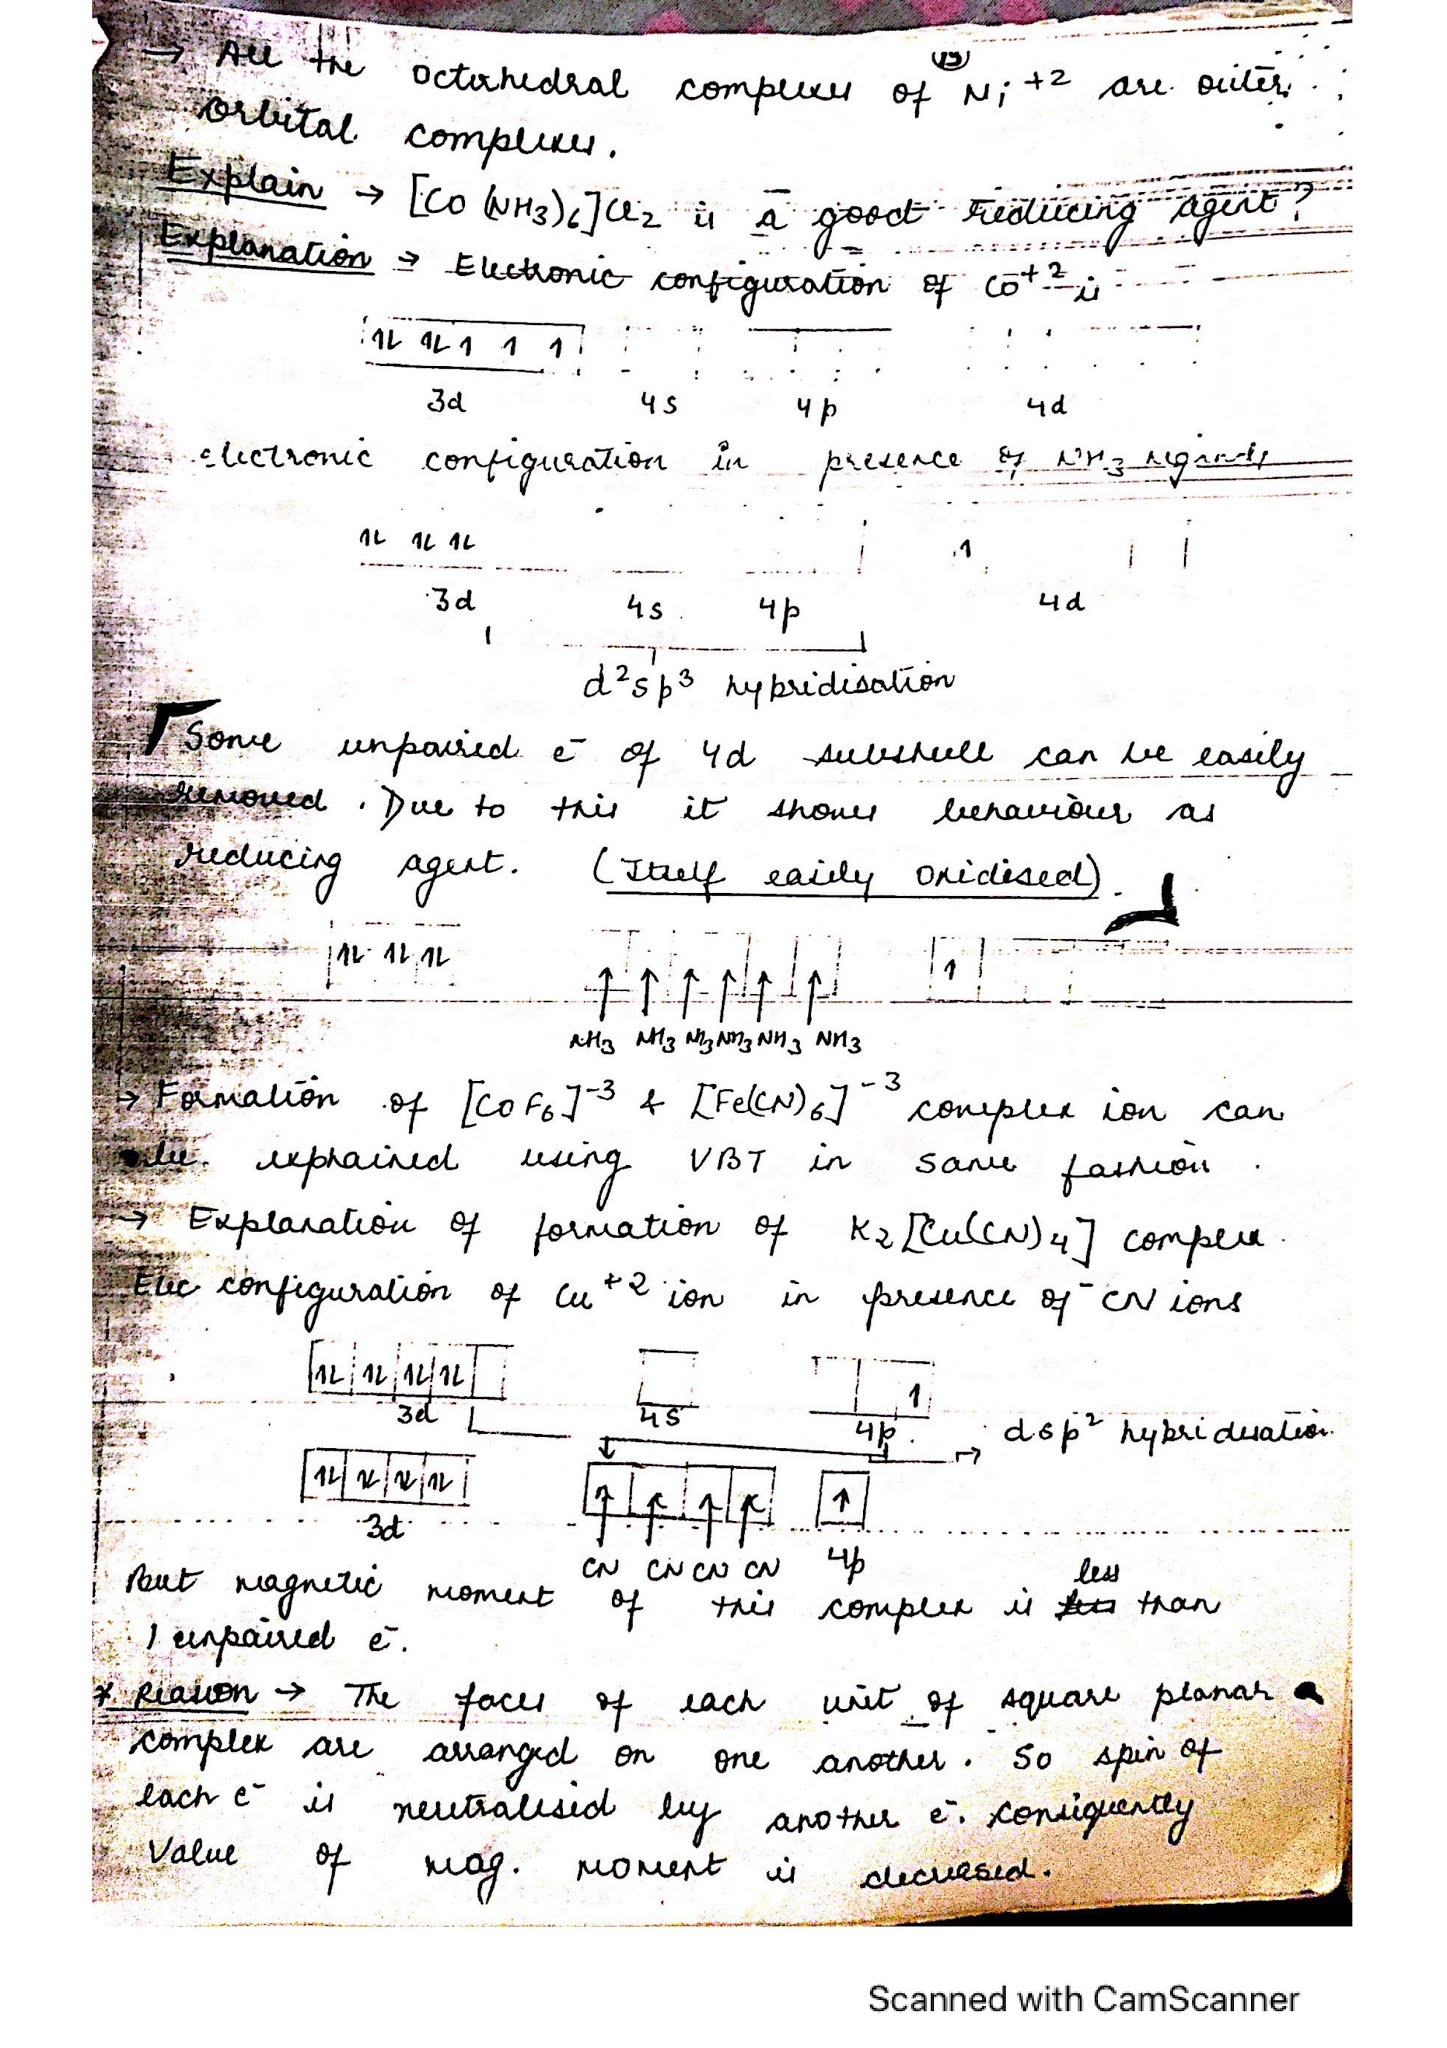 (13)
→ All the octahedral complexes of Ni+2 are outer
orbital complexes.
Explain → [Co(NH3)6]Cl2 is a good reducing agent?
Explanation → Electronic configuration of Co+2 is
1L 1L 1 1 1
3d 4s 4p 4d
electronic configuration in presence of NH3
1L 1L 1L 1
3d 4s 4p 4d
d²sp³ hybridisation
Some unpaired e- of 4d subshell can be easily
removed. Due to this it shows behaviour as
reducing agent. (Itself easily oxidised).
1L 1L 1L 1
NH3 NH3 NH3 NH3 NH3 NH3
→ Formation of [CoF6]-3 & [Fe(CN)6]-3 complex ion can
be explained using VBT in same fashion.
→ Explanation of formation of K2[Cu(CN)4] complex.
Elec configuration of Cu+2 ion in presence of -CN ions
1L 1L 1L 1L 1
3d 4s 4p → dsp² hybridisation
1L 1L 1L 1L ↑
3d CN CN CN CN 4p
But magnetic moment of this complex is less than
1 unpaired e-.
* Reason → The faces of each unit of square planar
complex are arranged on one another. So spin of
each e- is neutralised by another e-. consiquently
Value of mag. moment is decreased.
Scanned with CamScanner